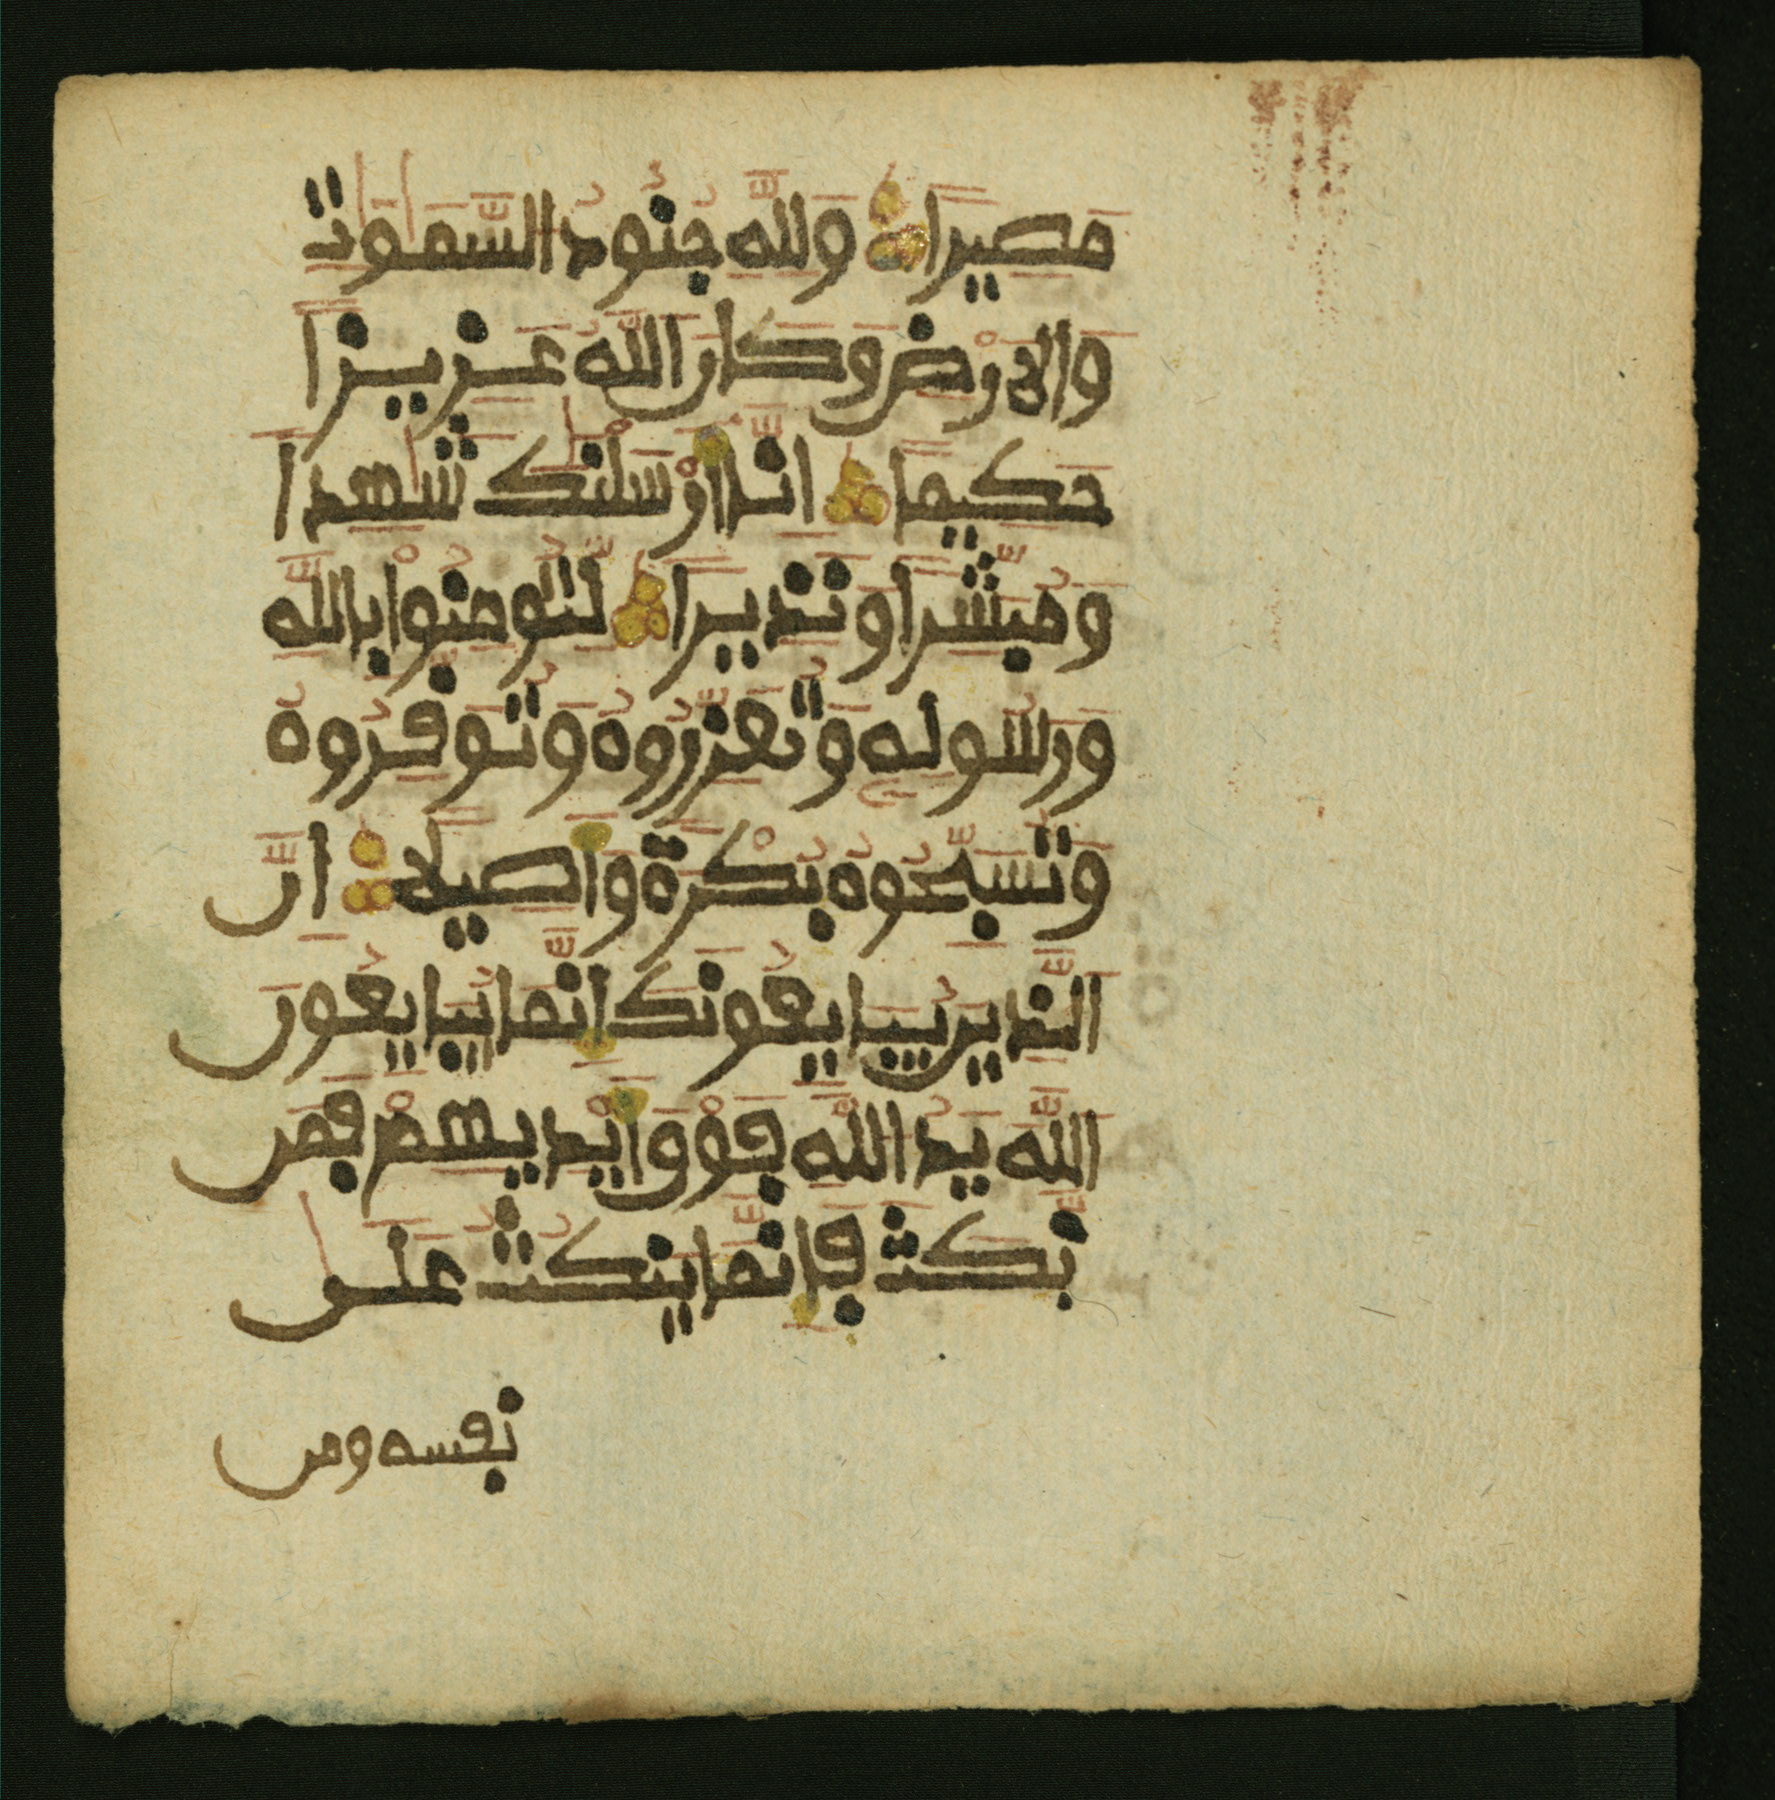 مَصِيرًا وَلِلَّهِ جُنُودُ السَّمَٰوَٰتِ
وَالَارْضِ وَكَانَ اللَّهُ عَزِيزًا
حَكِيمًا اِنَّا أَرْسَلْنَٰكَ شَٰهِدًا
وَمُبَشِّرًا وَنَذِيرًا لِّتُومِنُوا بِاللَّهِ
وَرَسُولِهِ وَتُعَزِّرُوهُ وَتُوَفِّرُوهُ
وَتُسَبِّحُوهُ بُكْرَةً وَأَصِيلًا اِنَّ
الَّذِينَ يُبَايِعُونَكَ إِنَّمَا يُبَايِعُونَ
اللَّهَ يَدُ اللَّهِ ڢَوْقَ أَيْدِيهِمْ ڢَمَن
نَّكَثَ ڢَإِنَّمَا يَنكُثُ عَلَىٰ
نڢسه ومن